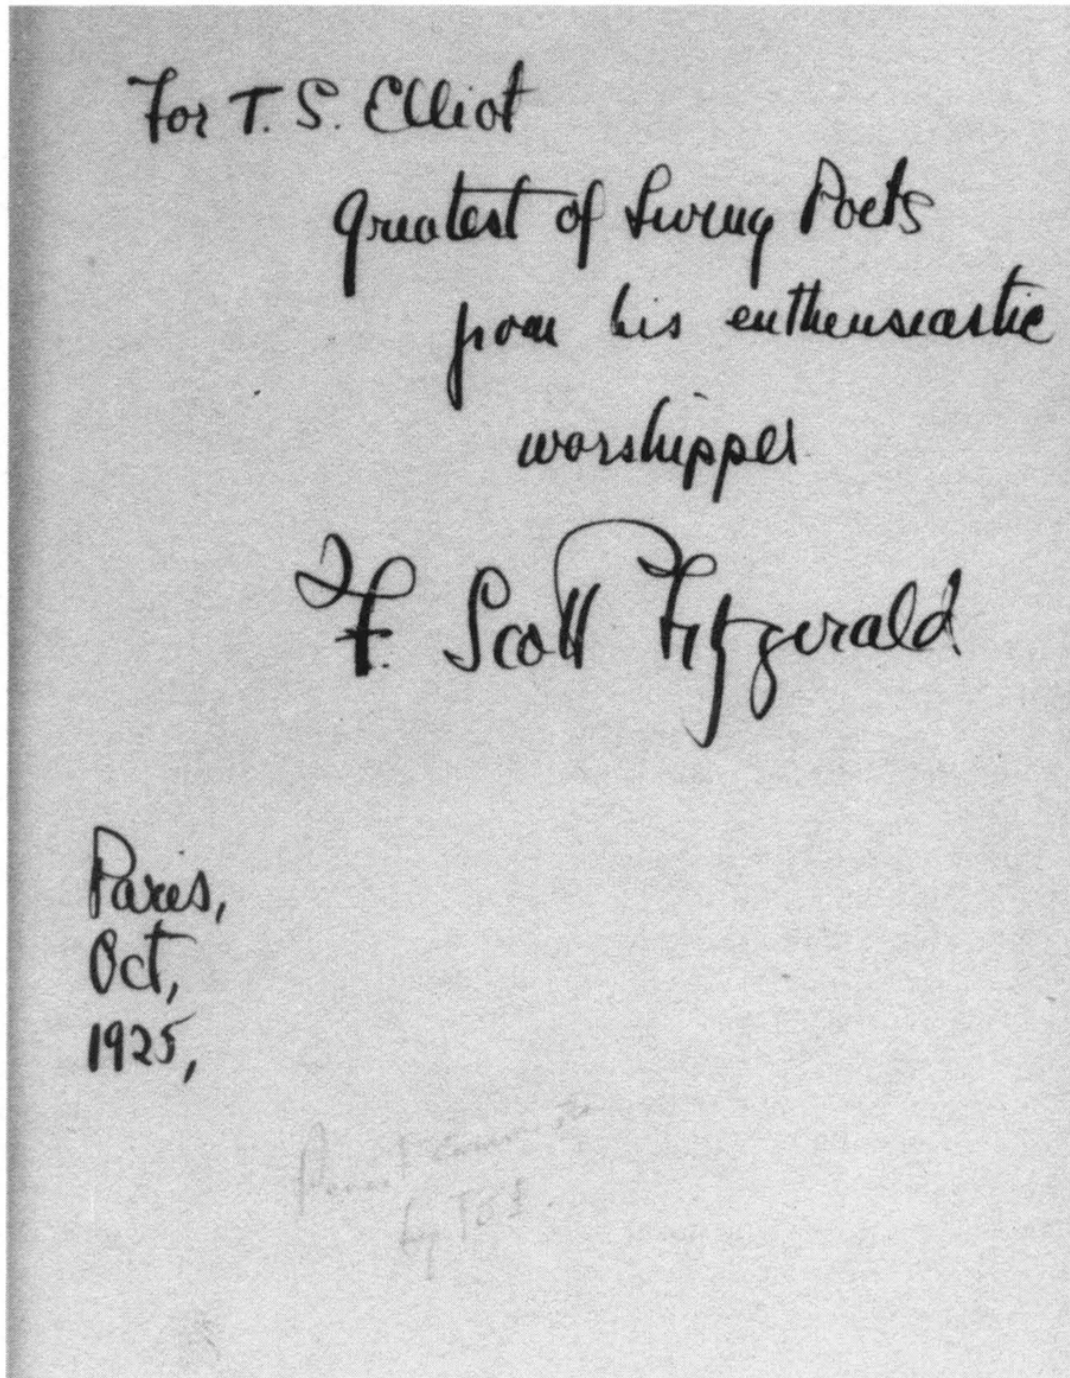 For T. S. Elliot
Greatest of Living Poets
from his entheusiastic
worshipper
F. Scott Fitzgerald
Paris,
Oct,
1925,
by TSE.